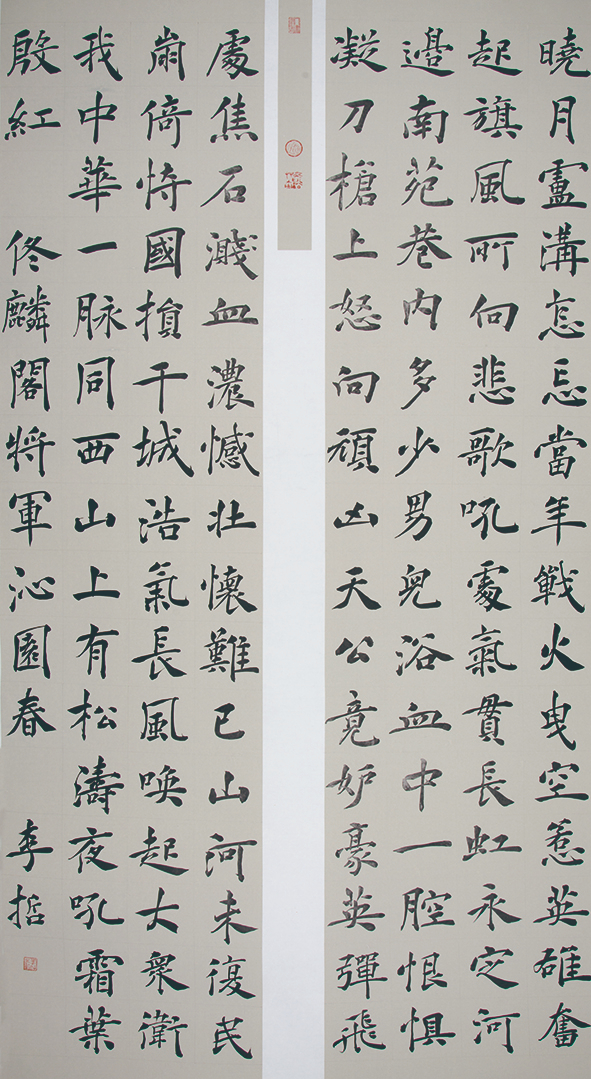 曉月盧溝怎忘當年戰火曳空惹英雄奮
起旗風所向悲歌吼處氣貫長虹永定河
邊南苑巷内多少男兒浴血中一腔恨懼
凝刀槍上怒向頑凶天公竟妒豪英彈飛
處焦石濺血濃憾壯懷難已山河未復民
崩倚恃國損干城浩氣長風喚起大衆衛
我中華一脉同西山上有松濤夜吼霜葉
殷紅 佟麟閣將軍沁園春 李哲